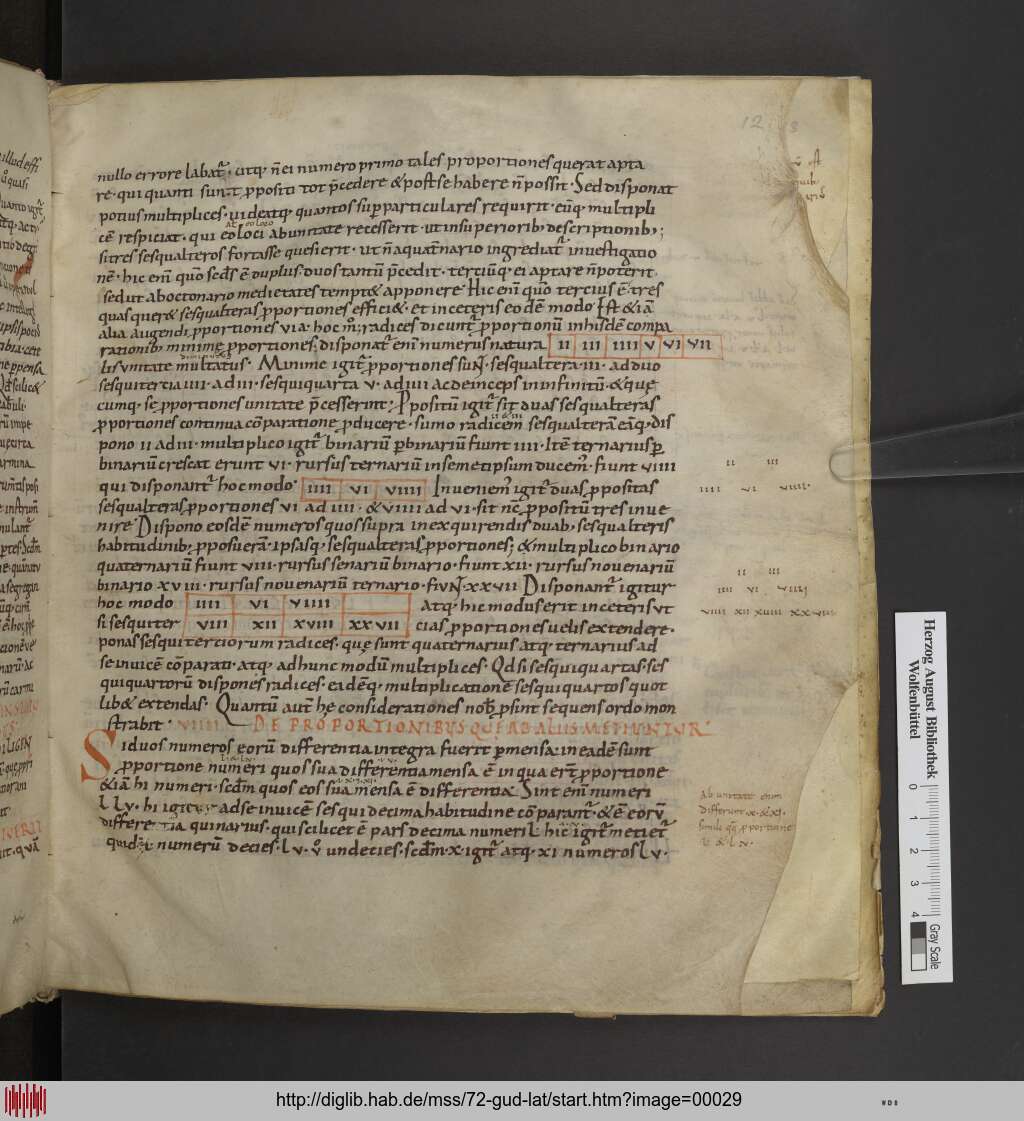 nullo errore labat̃ · utq; ñ ei numero primo tales proportiones querat apta
re · qui quanti sunt ꝓpositi tot p̃cedere & post se habere ñ possit · Sed disponat
potius multiplices · uideatq; quantos suꝑparticulares requirit · eũq; multipli
cẽ respiciat · qui eo loci ab unitate recesserit · ut in superiorib; descriptionib;;
si tres sesqualteros fortasse quesierit · ut ñ a quat̃nario ingrediat̃ inuestigatio
nẽ · hic eni᷎ quo secđs ẽ duplus · duos tantũ p̃cedit · terciũq; ei aptare ñ poterit
sed ut ab octonario medietates tempt& apponere · Hic eni᷎ quo tercius ẽ · tres
quas quer& sesqualteras ꝓportiones effici& · et in ceteris eodẽ modo · Est & iã
alia augendi ꝓportiones uia · hoc m̊; radices dicunt̃ ꝓportionũ in hisdẽ compa
rationib; minime ꝓportiones; disponat̃ eni᷎ numerus natura II III IIII V VI VII
lis unitate multatus · Minime igit̃ ꝓportiones sunt · sesqualtera · III · ad duo
sesquitercia IIII · ad · III · sesquiquarta V · ad IIII ac deinceps in infinitũ · & quę
cumq; se ꝓportiones unitate p̃cesserint; Ppositũ igit̃ sit duas sesqualteras
ꝓportiones continua cõparatione ꝓducere · sumo radicem sesqualterã eãq; dis
pono II ad III · multiplico igit̃ binariũ ꝑ binariũ fiunt IIII · Itẽ ternarius ꝑ
binariũ crescat erunt VI · rursus ternariũ in semetipsum ducem̃ · fiunt VIIII
qui disponant̃ hoc modo · IIII VI VIIII Inueniem̃ igit̃ duas ꝓpositas
sesqualteras ꝓportiones VI ad IIII · & VIIII ad VI · sit nc̃ ꝓpositũ tres inue
nire · Dispono eosdẽ numeros quos supra in exquirendis duab; sesqualteris
habitudinib; ꝓposuerã · ipsasq; sesqualteras ꝓportiones; & multiplico binario
quaternariũ fiunt VIII · rursus senariũ binario · fiunt XII · rursus nouenariũ
binario XVIII · rursus nouenariũ ternario · fiunt · XXVII Disponant̃ igitur
hoc modo IIII VI VIIII Atq; hic modus erit in ceteris ut
si sesquiter VIII XII XVIII XXVII cias ꝓportiones uelis extendere ·
ponas sesquiterciorum radices · quę sunt quaternarius atq; ternarius ad
se inuicẽ cõparati · atq; ad hunc modũ multiplices · Qd si sesquiquartas · ses
quiquartorũ dispones radices · eadẽq; multiplicatione sesquiquartos quot
lib& extendas · Quantũ aut̃ hę considerationes nob̃ ꝓsint sequens ordo mon
strabit · VIIII DE PROPORTIONIBUS QUE AB ALIIS METIUNTUR
Si duos numeros eorũ differentia integra fuerit ꝑmensa · in eadẽ sunt
ꝓportione numeri quos sua differentia mensa ẽ in qua er̃t ꝓportione
& iã hi numeri · scđm quos eos sua mensa ẽ differentia · Sint eni᷎ numeri
L LV · hi igit̃ ad se inuicẽ sesquidecima habitudine cõparant̃ · & ẽ eorũ
differentia quinarius · qui scilicet ẽ pars decima numeri L · hic igit̃ metiet̃
quidẽ L numerũ decies · LV · ů undecies · scđm · X · igit̃ atq; XI numeros L V ·
II III
IIII VI VIIII
II III
IIII VI VIIII
VIII XII XVIII XXVII
Ab unitate enim
differunt X · & XI ·
simili q̃ ꝓportione
L & LV ·
12
Herzog August Bibliothek
Wolfenbüttel
0 1 2 3 4
Gray Scale
http://diglib.hab.de/mss/72-gud-lat/start.htm?image=00029